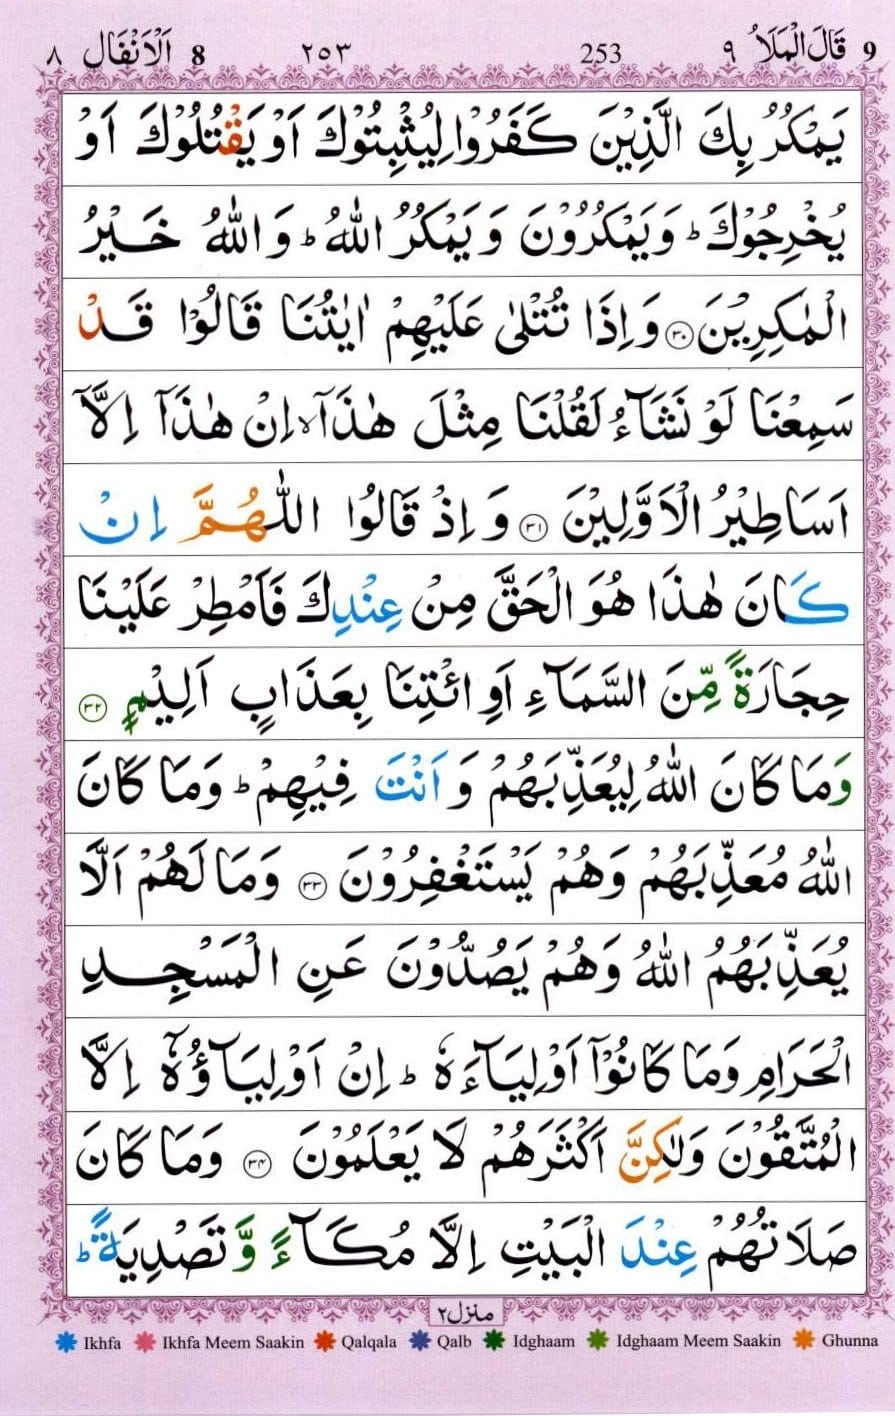 9 قَالَ الْمَلَاُ ٩ 253 ٢٥٣ 8 اَلْاَنْفَال ٨
يَمْكُرُ بِكَ الَّذِيْنَ كَفَرُوْا لِيُثْبِتُوْكَ اَوْ يَقْتُلُوْكَ اَوْ
يُخْرِجُوْكَ ؕ وَيَمْكُرُوْنَ وَيَمْكُرُ اللّٰهُ ؕ وَاللّٰهُ خَيْرُ
الْمٰكِرِيْنَ ۝٣٠ وَاِذَا تُتْلٰى عَلَيْهِمْ اٰيٰتُنَا قَالُوْا قَدْ
سَمِعْنَا لَوْ نَشَآءُ لَقُلْنَا مِثْلَ هٰذَآ ۙ اِنْ هٰذَآ اِلَّآ
اَسَاطِيْرُ الْاَوَّلِيْنَ ۝٣١ وَاِذْ قَالُوا اللّٰهُمَّ اِنْ
كَانَ هٰذَا هُوَ الْحَقَّ مِنْ عِنْدِكَ فَاَمْطِرْ عَلَيْنَا
حِجَارَةً مِّنَ السَّمَآءِ اَوِ ائْتِنَا بِعَذَابٍ اَلِيْمٍ ۝٣٢
وَمَا كَانَ اللّٰهُ لِيُعَذِّبَهُمْ وَاَنْتَ فِيْهِمْ ؕ وَمَا كَانَ
اللّٰهُ مُعَذِّبَهُمْ وَهُمْ يَسْتَغْفِرُوْنَ ۝٣٣ وَمَا لَهُمْ اَلَّا
يُعَذِّبَهُمُ اللّٰهُ وَهُمْ يَصُدُّوْنَ عَنِ الْمَسْجِدِ
الْحَرَامِ وَمَا كَانُوْٓا اَوْلِيَآءَهٗ ؕ اِنْ اَوْلِيَآؤُهٗٓ اِلَّا
الْمُتَّقُوْنَ وَلٰكِنَّ اَكْثَرَهُمْ لَا يَعْلَمُوْنَ ۝٣٤ وَمَا كَانَ
صَلَاتُهُمْ عِنْدَ الْبَيْتِ اِلَّا مُكَآءً وَّتَصْدِيَةً ؕ
منزل٢
Ikhfa Ikhfa Meem Saakin Qalqala Qalb Idghaam Idghaam Meem Saakin Ghunna